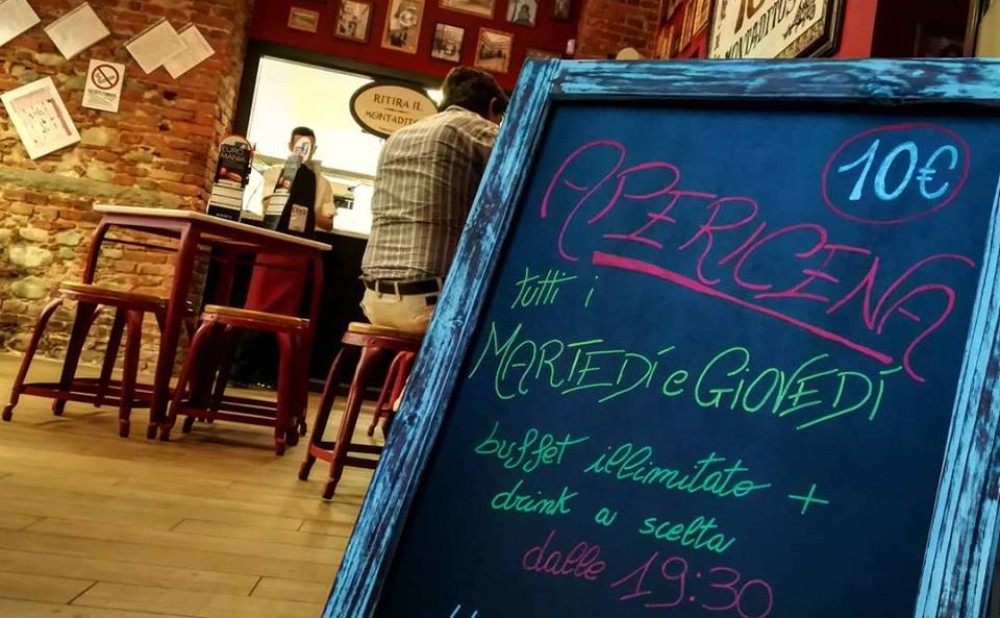 RITIRA IL
MONTADITO
EURO
MANIA
MONTADITOS
10€
APERICENA
tutti i
MARTEDÍ e GIOVEDÍ
buffet illimitato +
drink a scelta
dalle 19:30